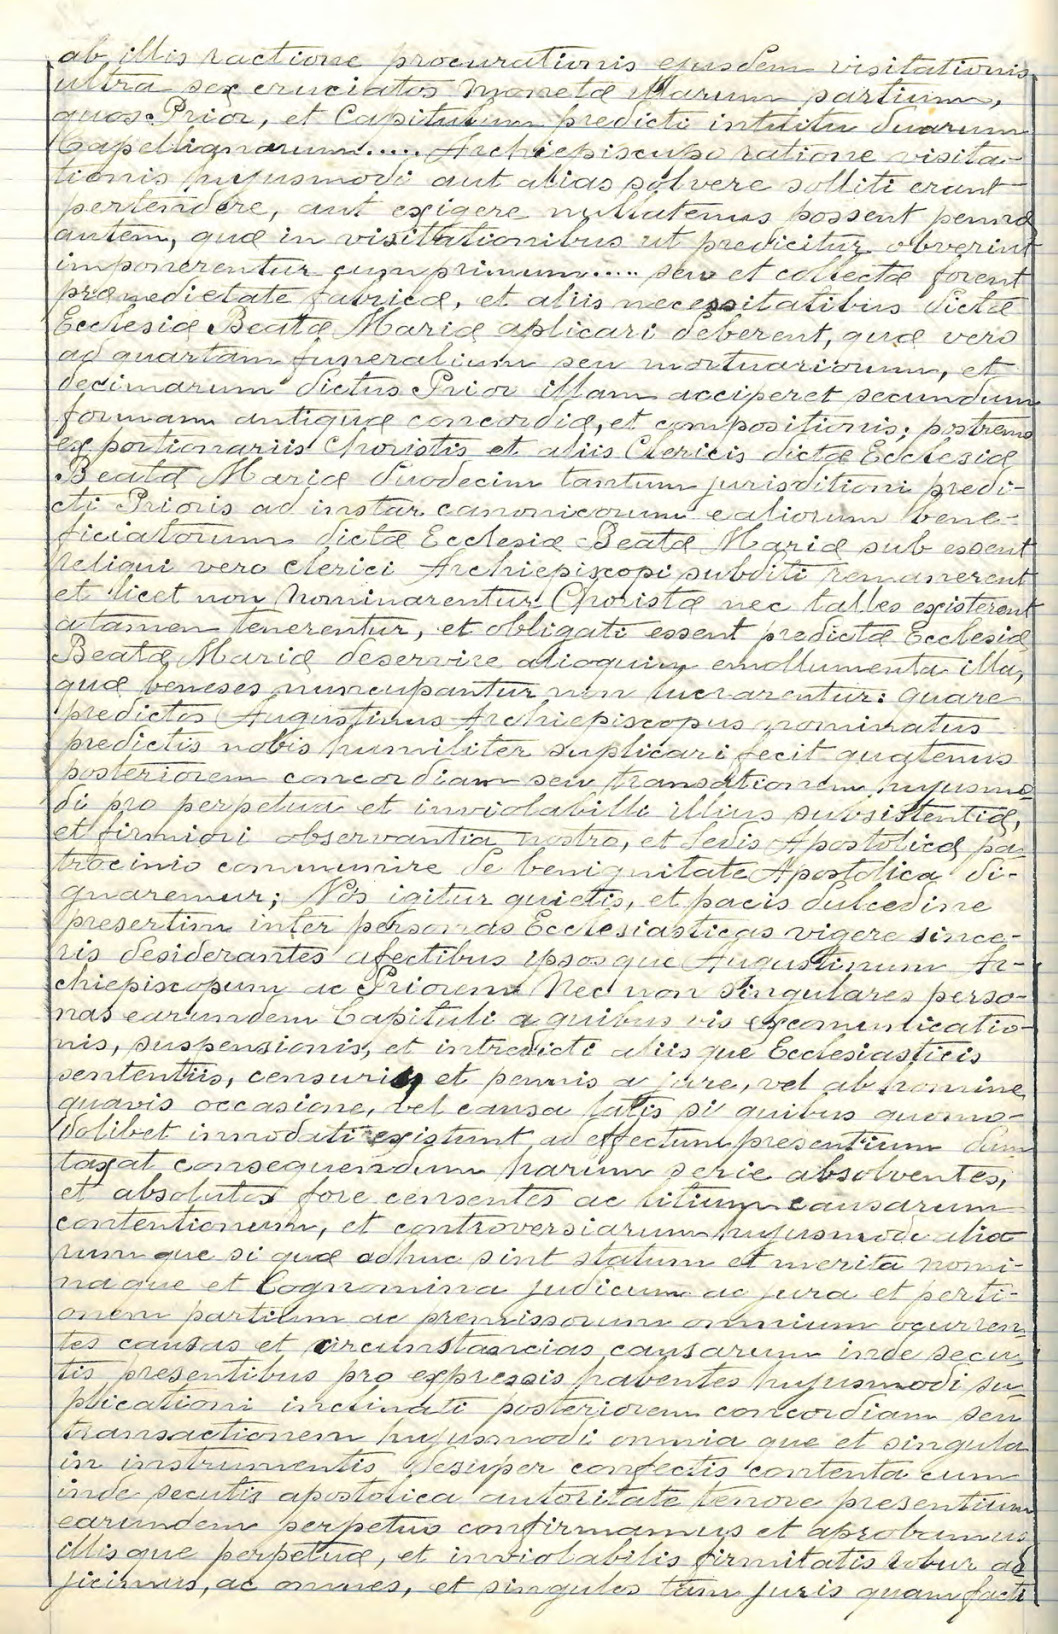 ab illis ractione procurationis ejusdem visitationis
ultra sex cruciatos Monetæ illarum partium,
quos Prior, et Capitulum predicti intuitu duarum
Capellianarum..... Archiepiscupo ratione visita-
tionis hujusmodi aut alias solvere solliti erant
pertendere, aut exigere nullatenus possent pennæ
autem, quæ in visittationibus ut predicitur obverint
imponerentur cum primum..... seu et collectæ forent
præmedietate fabricæ, et aliis necessitatibus dictæ
Ecclesiæ Beatæ Mariæ aplicari deberent, quæ vero
ad quartam funeralium seu mortuariorum, et
decimarum dictus Prior illam acciperet secundum
formam antiquæ concordiæ, et compositionis; postremo
ex portionariis Choristis et aliis Clericis dictæ Ecclesiæ
Beatæ Mariæ duodecim tantum jurisditioni predi-
cti Prioris ad instar canonicorum ealiorum bene-
ficiatorum dictæ Ecclesiæ Beatæ Mariæ sub essent
reliqui vero clerici Archiepiscopi subditi remanerent
et licet non Nominarentur Choristæ nec talles existerent
atamen tenerentur, et obligati essent predictæ Ecclesiæ
Beatæ Mariæ deservire alioquim emollumenta illa,
quæ beneses nuncupantur non lucrarentur: quare
predictos Augustinus Archiepiscopus nominatus
predictis nobis humiliter suplicari fecit quatenus
posteriorem concordiam seu transationem hujusmo-
di pro perpetua et inviolabilli illius subsistentiæ,
et firmiori observantia nostro, et Sedis Apostolicæ pa-
trocinio communire de benignitate Apostolica di-
gnaremur; Nos igitur quietis, et pacis dulcedine
presertim inter personas Ecclesiasticas vigere since-
ris desiderantes afectibus ipsosque Augustinum Ar-
chiepiscopum ac Priorem Nec non singulares perso-
nas earumdem Capituli a quibus vis excomunicatio-
nis, suspensionis, et intredicti aliis que Ecclesiasticis
sententiis, censuris et pennis a jure, vel ab homine
quavis occasione, vel causa latis si quibus quomo-
dolibet innodati existunt ad effectum presentium dum
taxat consequendum harum serie absolventes,
et absolutos fore censentes ac litium causarum
contentionum, et controversiarum hujusmodi alia
rum que si quæ adhuc sint statum et merita nomi-
na que et Cognomina judicum ac jura et perti-
onem partium ac premissorum omnium ocurren
tes causas et circumstancias causarum inde secu
tis presentibus pro expressis haventes hujusmodi su
plicationi inclinati posteriorem concordiam seu
transactionem hujusmodi omnia que et singula
in instrumentis desuper confectis contenta cum
inde secutis apostolica autoritate tenore presentium
earumdem perpetuo confirmamus et aprobamus
illis que perpetuæ, et inviolabilis firmitatis robur ad
jicimus, ac omnes, et singulos tam juris quam facti